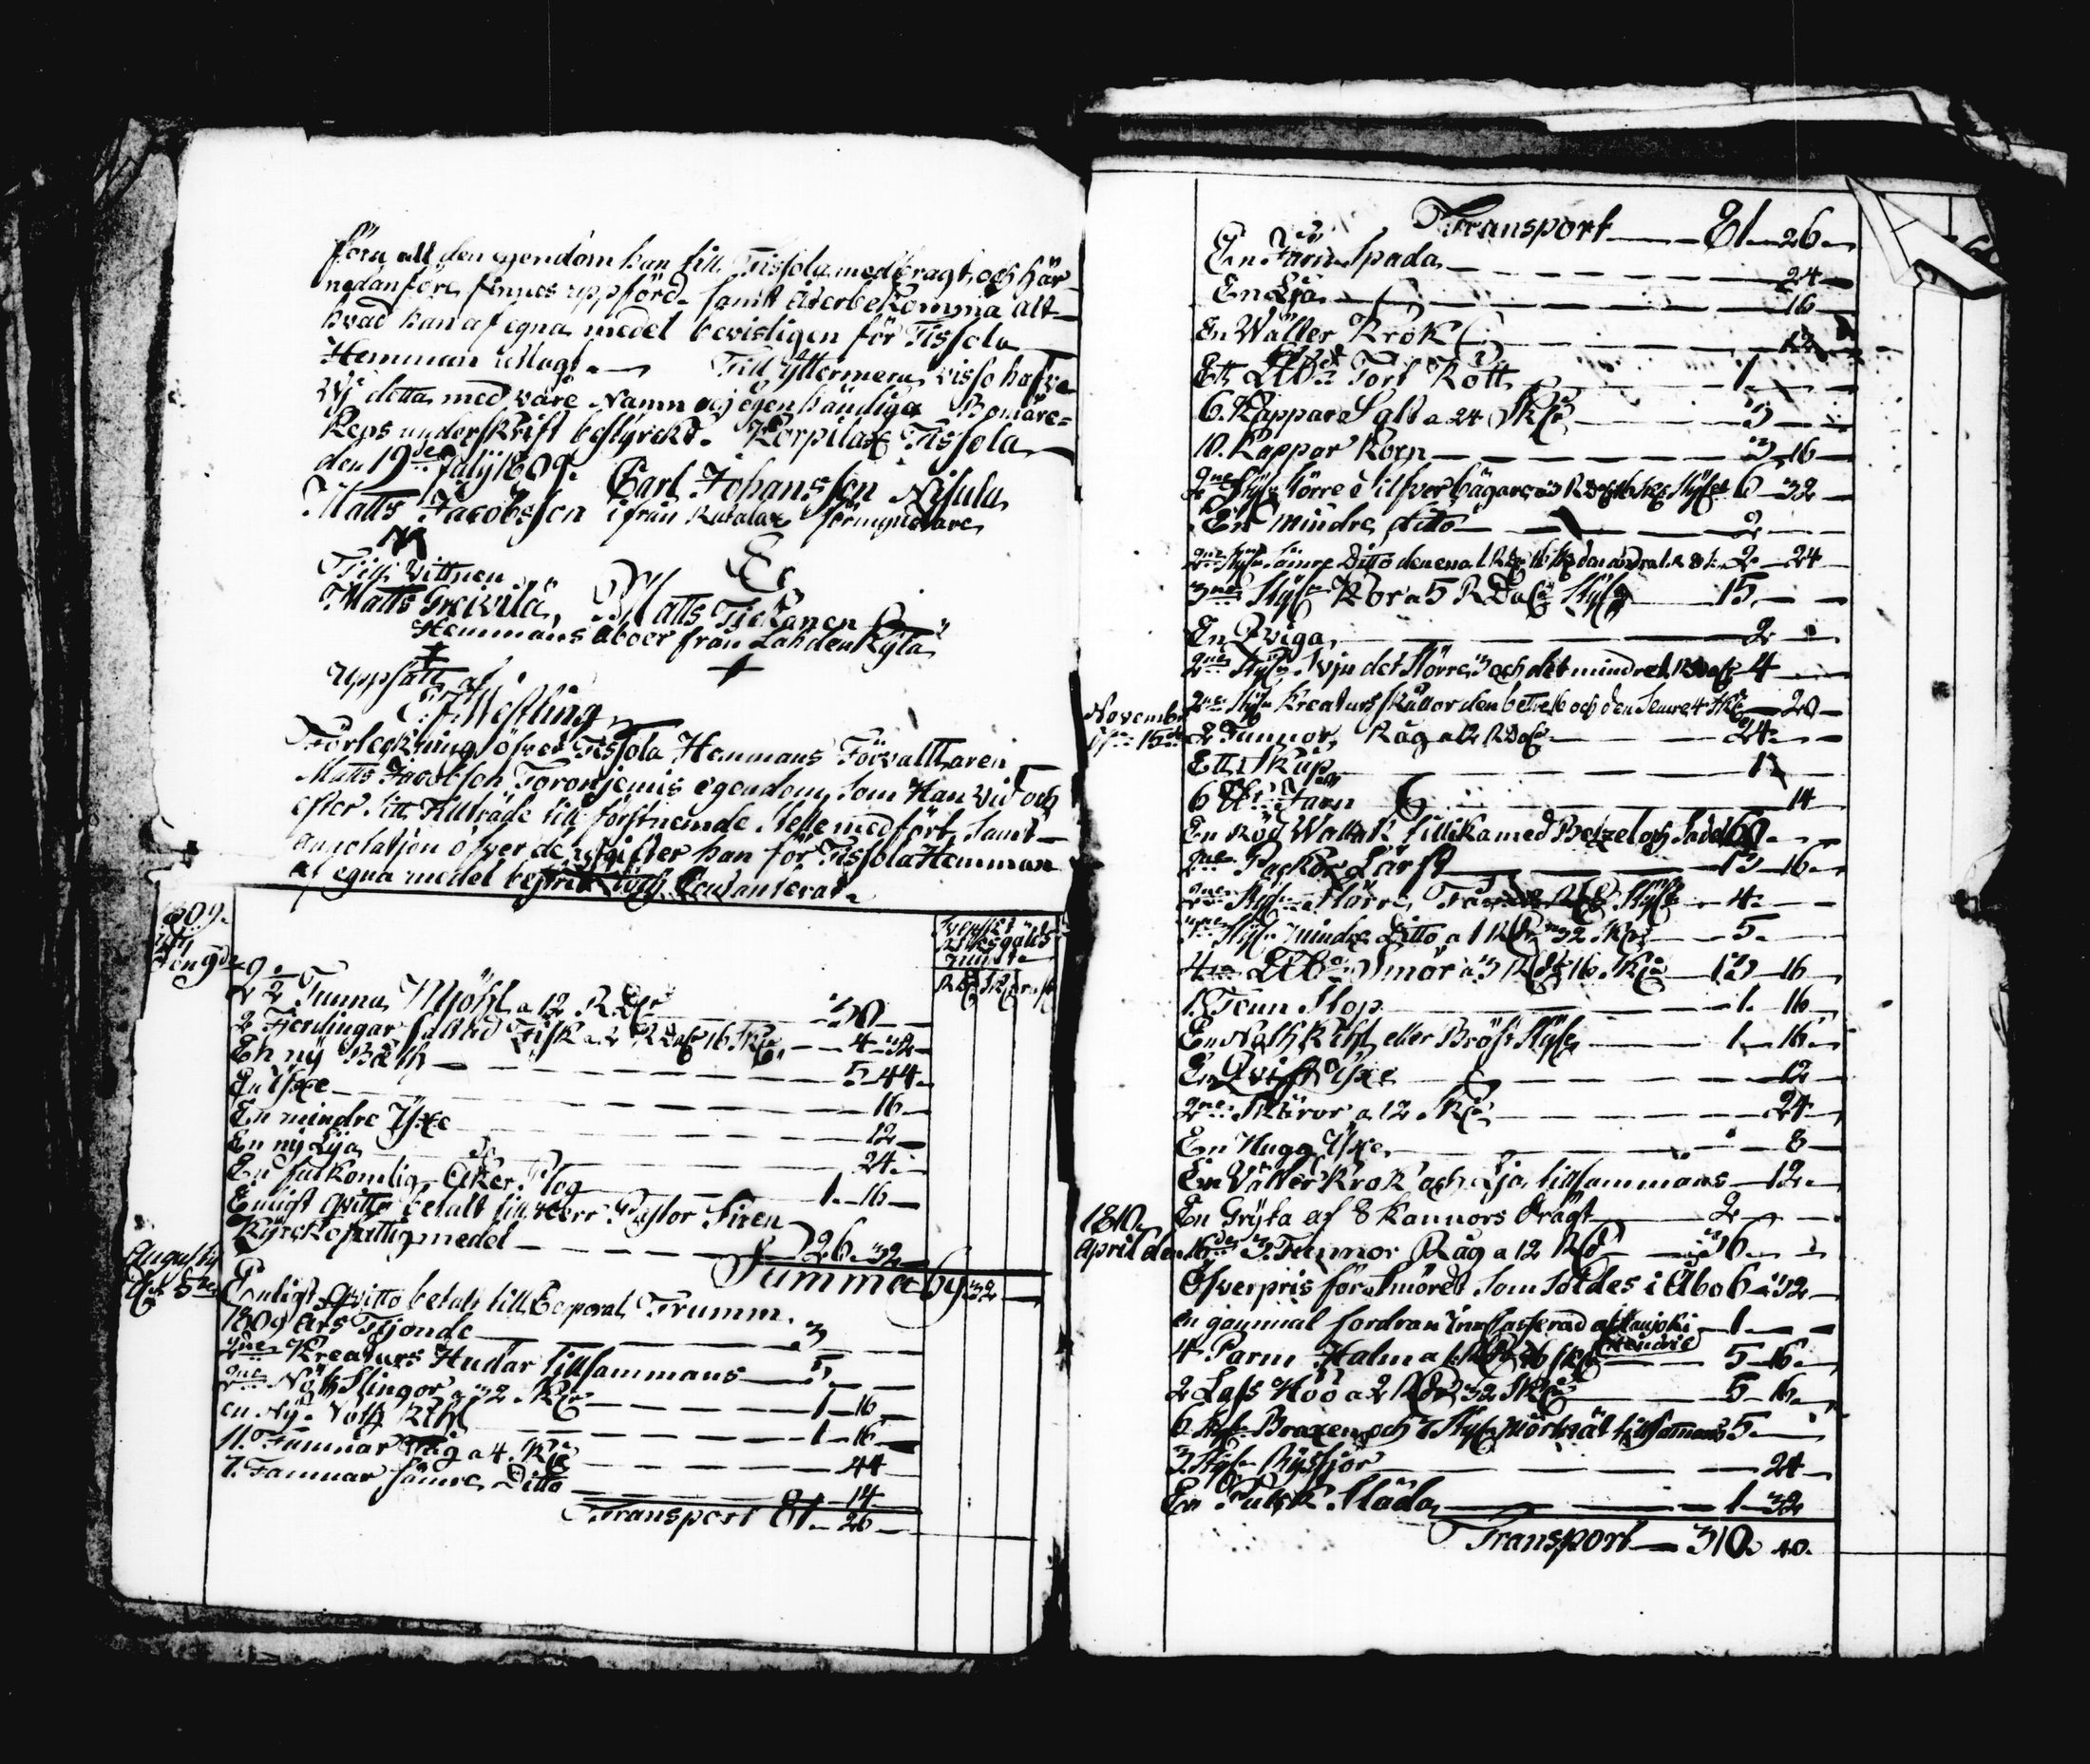 föra all den egendom han till Tissola medbragt, och här
nedanföre finnes uppförd, samt återbekomma alt
hvad han af egna medel bevisligen för Tissola
Hemman utlagt. Till yttermera visso hafve
vij detta med våre Namn och egenhändiga Bomärc=
keps underskrift bestyrckt. Korpilax Tissola
den 19de Julij 1809. Carl Johansson Nisula
Matts Jacobsson ifrån Rutalax förmyndare
Till Vittnen
Matts Greivilä, Matts Tickanen
Hemmans åboer från Lahdenkylä
Uppsatt af
E: J: Westling
Förteckning öfver Tissola Hemmans Förvalttaren
Matts Jacobsson Toronjemis egendom, som Han vid och
efter sitt Tillträde till förstnemde ställe medfört, samt
anotatsion öfver de utgifter han för Tissola Hemman
af egna medel bestridt och Contanterat.
1809.
den 9de
Svenskt
Riksgälds
mynt
2 1/2 Tunna Mjöhl a 12 RD 30
2 Fjerdingar saltad Fisk a 2 RDaler 16 Sk 4 32
En ny Båth 5 44
En Yxe 16
En mindre Yxe 12
En ny Lija 24
En fulkomlig Åker Plog 1 16
Enligt qvitto betalt till Herr Pastor Siren
Kyrckofattigmedel 26 32
Summa 69 32
Augusty
den 5te Enligt qvitto betalt till Corporal Trumm.
1809 Års Tijonde 3
2ne Kreaturs Hudar tillsammans 5
2ne Nöth Slingor a 32 Sk 1 16
en Ny Noth Kihl 1 16
11 Famnar Tåg a 4 Sk 44
7 Famnar sämre Ditto 14
Transport 81 26
Transport 81 26
En Järn Spada 24
En Lija 16
En Wälter Krok 12
Ett LW Torl Kött 1
6 Kappar Salt a 24 Sk 3
10 Kappar Korn 3 16
2ne Styc större Silfver bägare a 3 RD 16 Sk Stycket 6 32
En mindre ditto 2
2ne Styc sämre Ditto den ena 1 RD 16 Sk den andra 1 R 8 S 2 24
3ne Styc Kor a 5 RDaler Styc 15
En Qviga 2
2ne Styc Svijn det större 3 och det mindre 1 RDaler 4
2ne Styc Kreaturs skällor den bettre 16 och den semre 4 Sk 20
November
den 15de 2 Tunnor Råg a 12 RDaler 24
Ett Skåp 1
6 Järn 14
En röd Wallak tillika med Betzel och Sadel 60
2ne Packor Lärft 13 16
2ne Styc större Får a 2 RD Styc 4
3ne Styc mindre Ditto a 1 RD 32 Sk 5
4 LW Smör a 3 RD 16 Sk 13 16
1 Tenn Stop 1 16
En Noth Kihl eller Bröst Styc 1 16
En Qvist Yxe 12
2ne Skäror a 12 Sk 24
En Hugg Yxe 8
En Välter Krok och Lja tillsammans 12
En Gryta af 8 Kannors dragt 2
1810.
April den 16de 3 Tunnor Råg a 12 RD 36
Öfverpris för smöret som såldes i Åbo 6 32
en gammal fordran innkasserad af Haupoki Hendric 1
4 Parm Halm a 1 RD 16 Sk 5 16
2 Lass Höö a 2 RD 32 Sk 5 16
6 Styc Braxen och 7 Styc Mörtnät tillsammans 5
3 Styc Ryssjor 24
En Pulck Släda 1 32
Transport 310 40